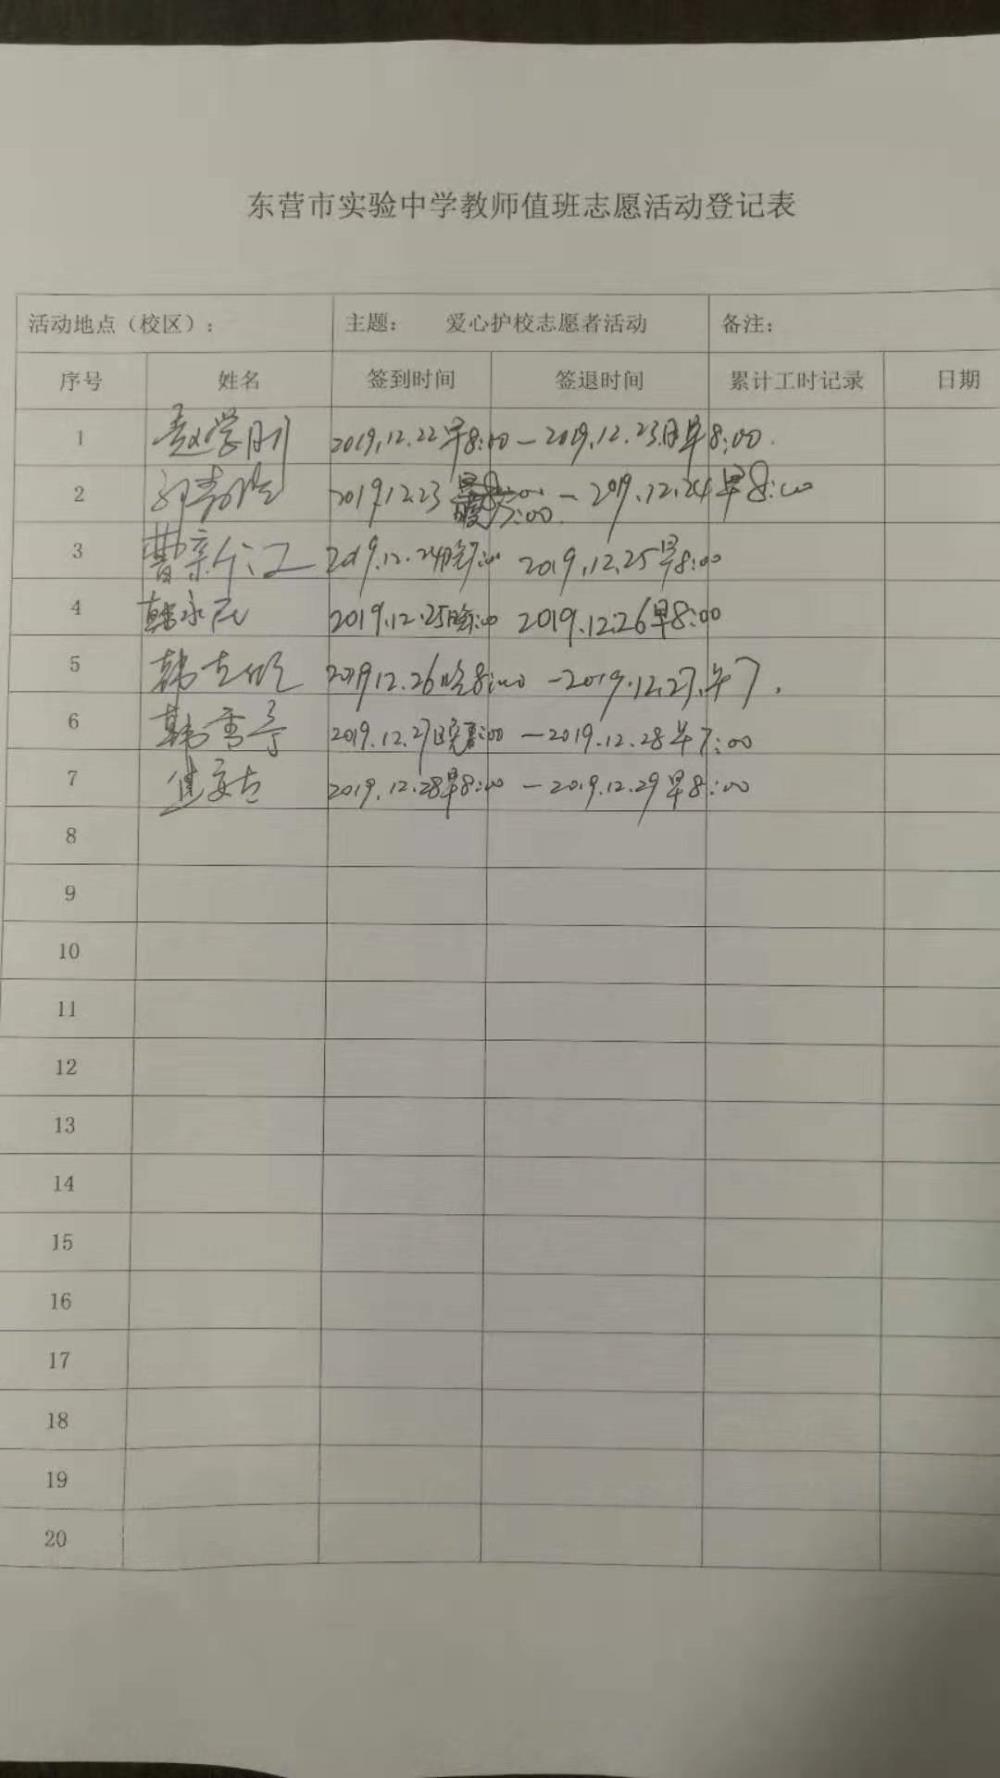 东营市实验中学教师值班志愿活动登记表
活动地点（校区）： 主题： 爱心护校志愿者活动 备注：
序号 姓名 签到时间 签退时间 累计工时记录 日期
1 赵学刚 2019.12.22早8:00－2019.12.23日早8:00.
2 2019.12.23 5:00－2019.12.24早8:00
3 曹新江 2019.12.24晚 2019.12.25早8:00
4 韩永 2019.12.25晚 2019.12.26早8:00
5 韩 2019.12.26晚8:00－2019.12.27.午7.
6 韩 2019.12.27晚 :00－2019.12.28午7:00
7 2019.12.28早8:00－2019.12.29早8:00
8
9
10
11
12
13
14
15
16
17
18
19
20